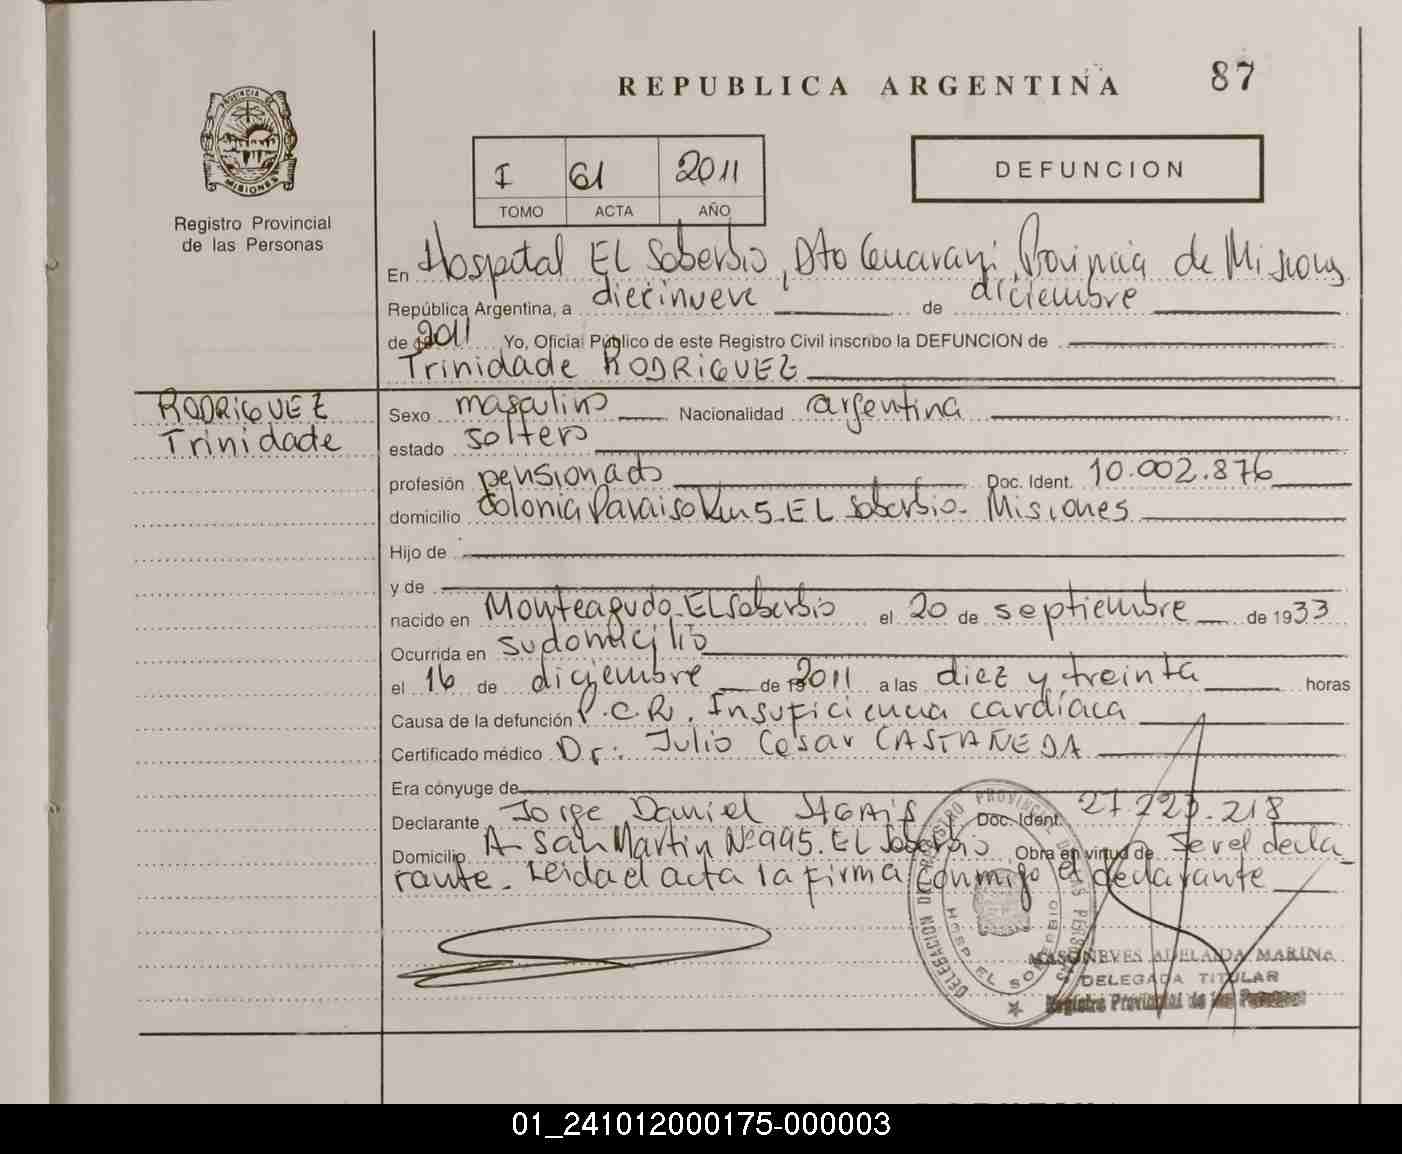 REPUBLICA ARGENTINA 87
PROVINCIA DE
MISIONES
Registro Provincial
de las Personas
DEFUNCION
I 61 2011
TOMO ACTA AÑO
En Hospital EL Soberbio, Dto Guarani, Provincia de Misiones
República Argentina, a diecinueve de diciembre
de 2011 Yo, Oficial Público de este Registro Civil inscribo la DEFUNCION de
Trinidade RODRIGUEZ
RODRIGUEZ
Trinidade
Sexo masculino Nacionalidad argentina
estado soltero
profesión pensionado Doc. Ident. 10.002.876
domicilio Colonia Paraiso Km 5. EL Soberbio. Misiones
Hijo de
y de
nacido en Monteagudo. EL Soberbio el 20 de septiembre de 1933
Ocurrida en su domicilio
el 16 de diciembre de 2011 a las diez y treinta horas
Causa de la defunción P.C.R. Insuficiencia cardíaca
Certificado médico Dr: Julio Cesar CASTAÑEDA
Era cónyuge de
Declarante Jorge Daniel Doc. Ident. 27.223.218
Domicilio A. San Martin Nº 995. EL Soberbio Obra en virtud de Ser el decla
rante. Leida el acta la firma conmigo el declarante
DELEGACION DE REGISTRO PROVINCIAL DE LAS PERSONAS
HOSP. EL SOBERBIO
MASONEVES ADELAIDA MARINA
DELEGADA TITULAR
Registro Provincial de las Personas
01_241012000175-000003